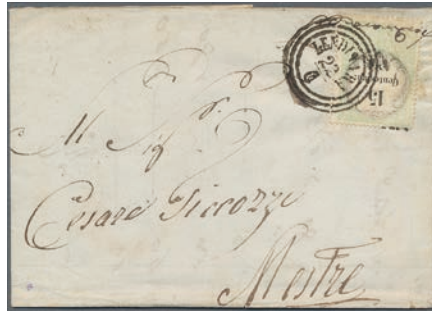 LENDINARA
22
15
Al Sigr.
Cesare Piccozzi
Mestre